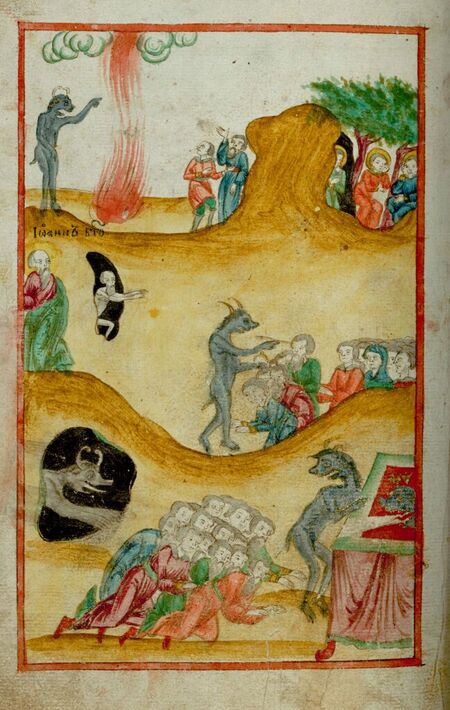 Іѡаннъ бго